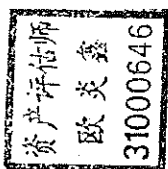 资产评估师
欧炎鑫
31000646